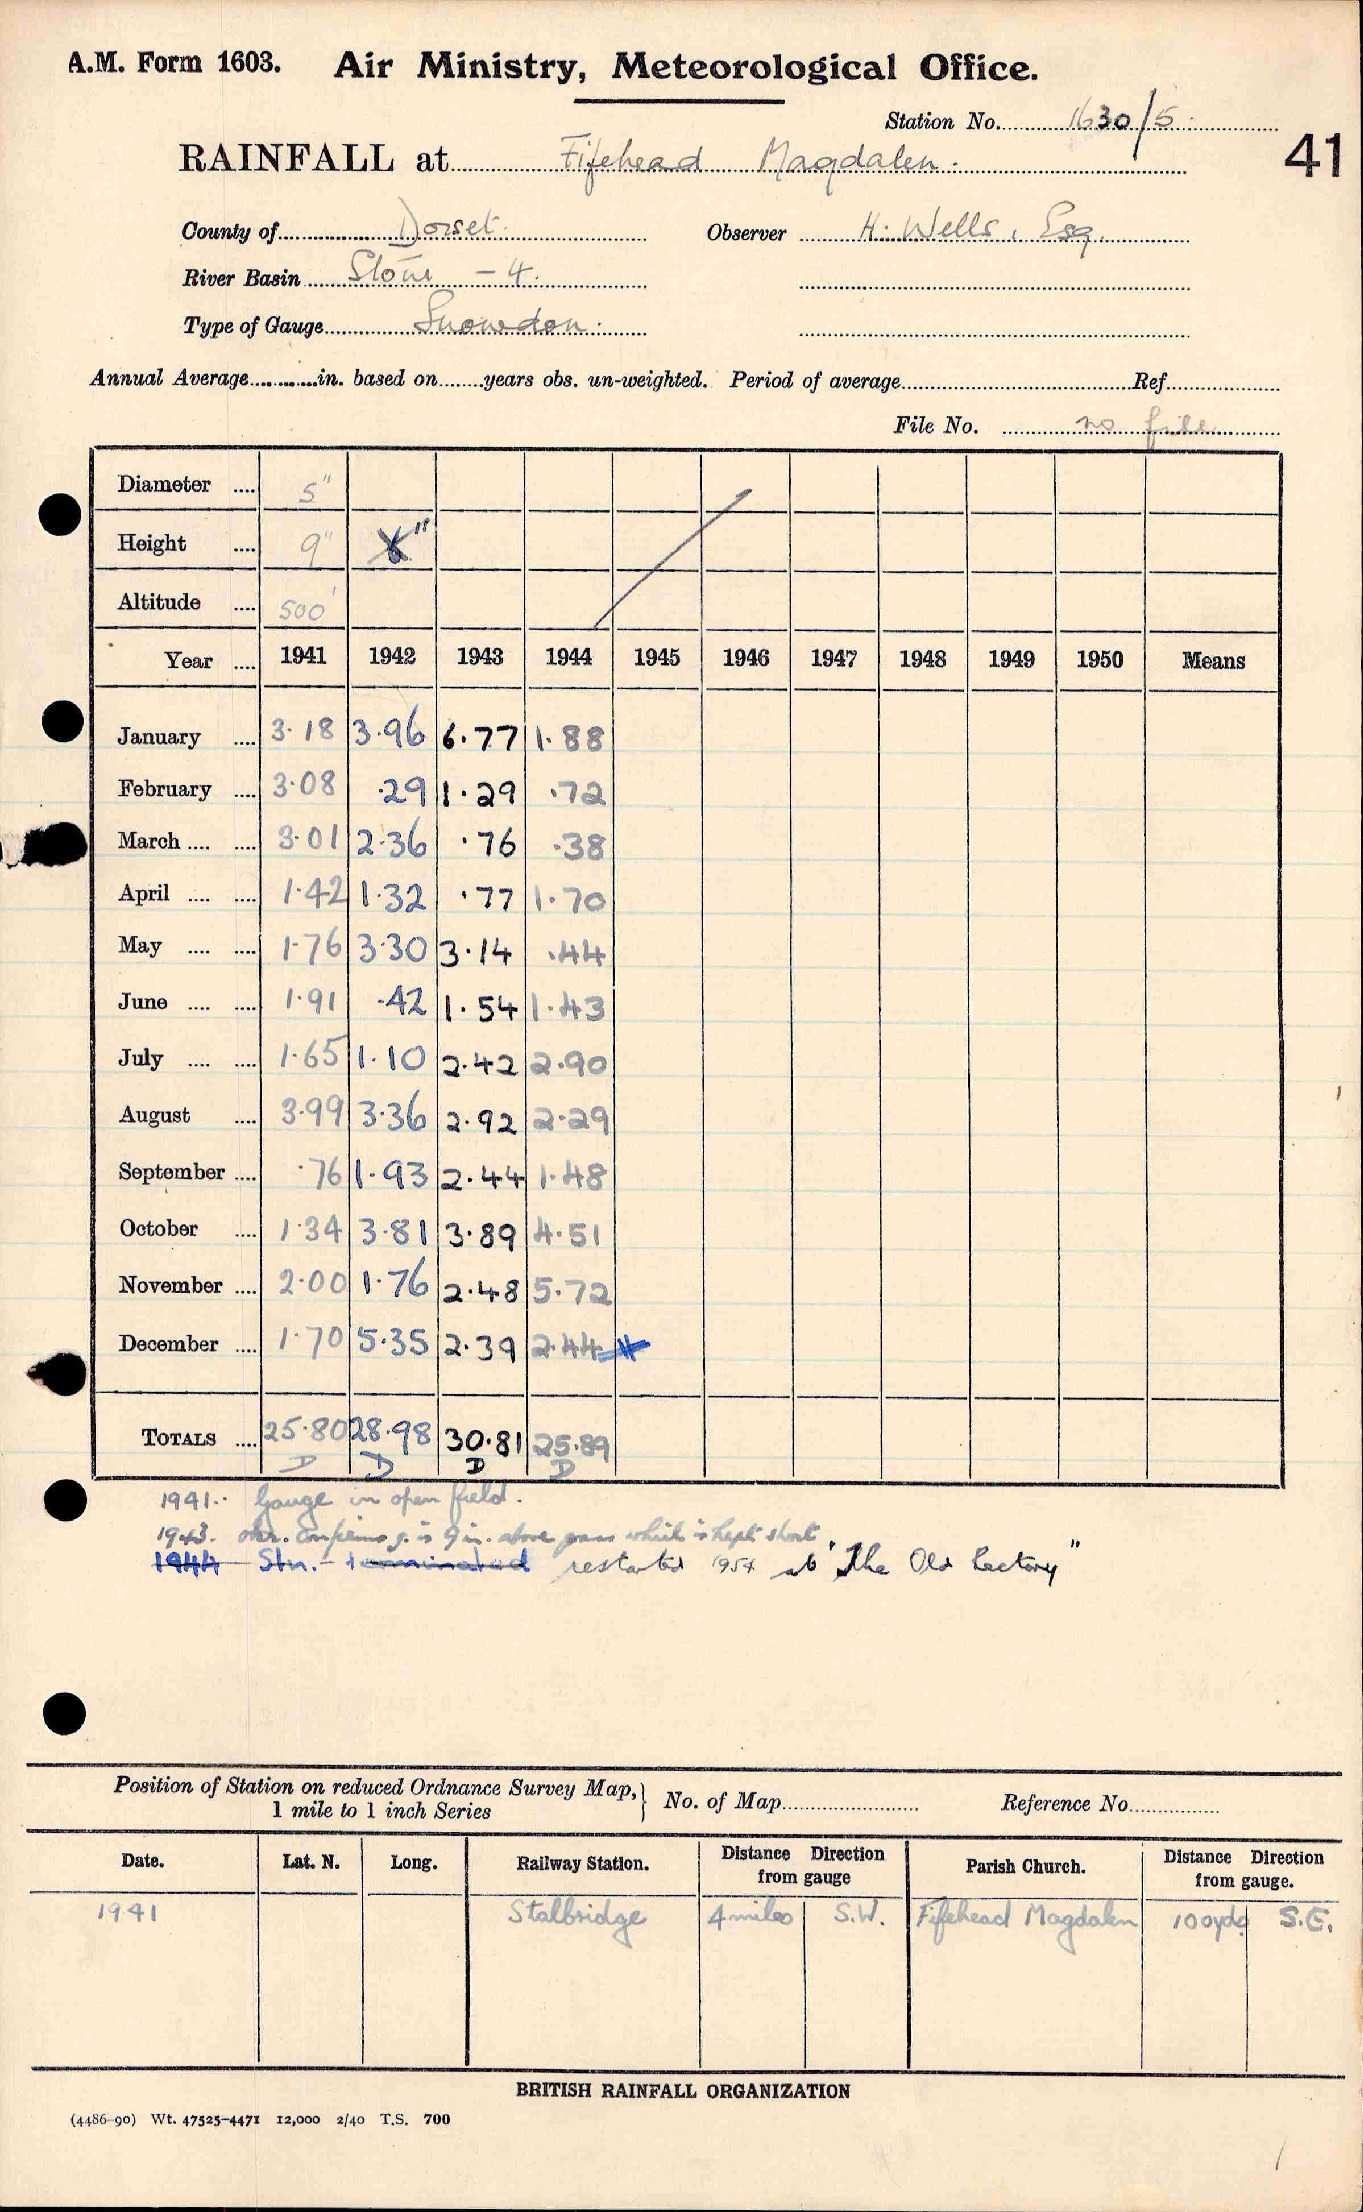 A.M. Form 1603. Air Ministry, Meteorological Office.
Station No. 1630/5.
41
RAINFALL at Fifehead Magdalen.
County of Dorset. Observer H. Wells, Esq.
River Basin Stour - 4.
Type of Gauge Snowdon.
Annual Average in. based on years obs. un-weighted. Period of average Ref.
File No. no file
Diameter 5"
Height 9"
Altitude 500'
Year 1941 1942 1943 1944 1945 1946 1947 1948 1949 1950 Means
January 3.18 3.96 6.77 1.88
February 3.08 .29 1.29 .72
March 3.01 2.36 .76 .38
April 1.42 1.32 .77 1.70
May 1.76 3.30 3.14 .44
June 1.91 .42 1.54 1.43
July 1.65 1.10 2.42 2.90
August 3.99 3.36 2.92 2.29
September .76 1.93 2.44 1.48
October 1.34 3.81 3.89 4.51
November 2.00 1.76 2.48 5.72
December 1.70 5.35 2.39 2.44
TOTALS 25.80 28.98 30.81 25.89
D D D D
1941.. Gauge in open field.
1943. obsr. confirms g. is 9 in. above grass which is kept short
1944 Stn. - terminated restarted 1954 at "The Old Rectory"
Position of Station on reduced Ordnance Survey Map, 1 mile to 1 inch Series } No. of Map Reference No.
Date. Lat. N. Long. Railway Station. Distance Direction from gauge Parish Church. Distance Direction from gauge.
1941 Stalbridge 4 miles S.W. Fifehead Magdalen 100yds S.E.
BRITISH RAINFALL ORGANIZATION
(4486-90) Wt. 47525-4471 12,000 2/40 T.S. 700